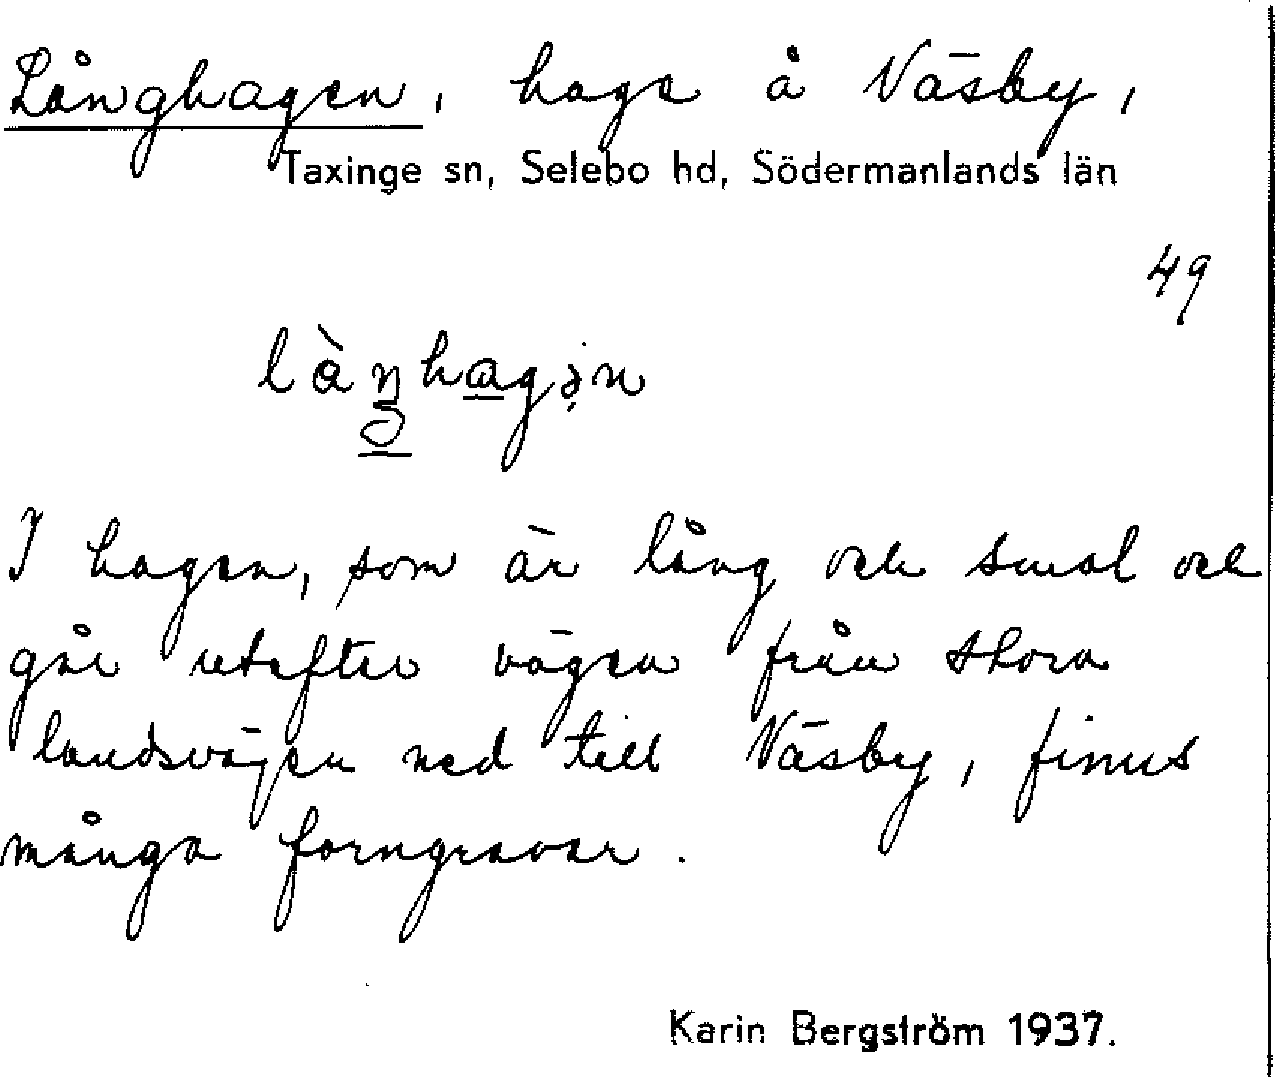 Långhagen, hage å Väsby,
Taxinge sn, Selebo hd, Södermanlands län
49
I hagen, som är lång och smal och
går utefter vägen från stora
landsvägen ned till Väsby, finns
många forngravar.
Karin Bergström 1937.